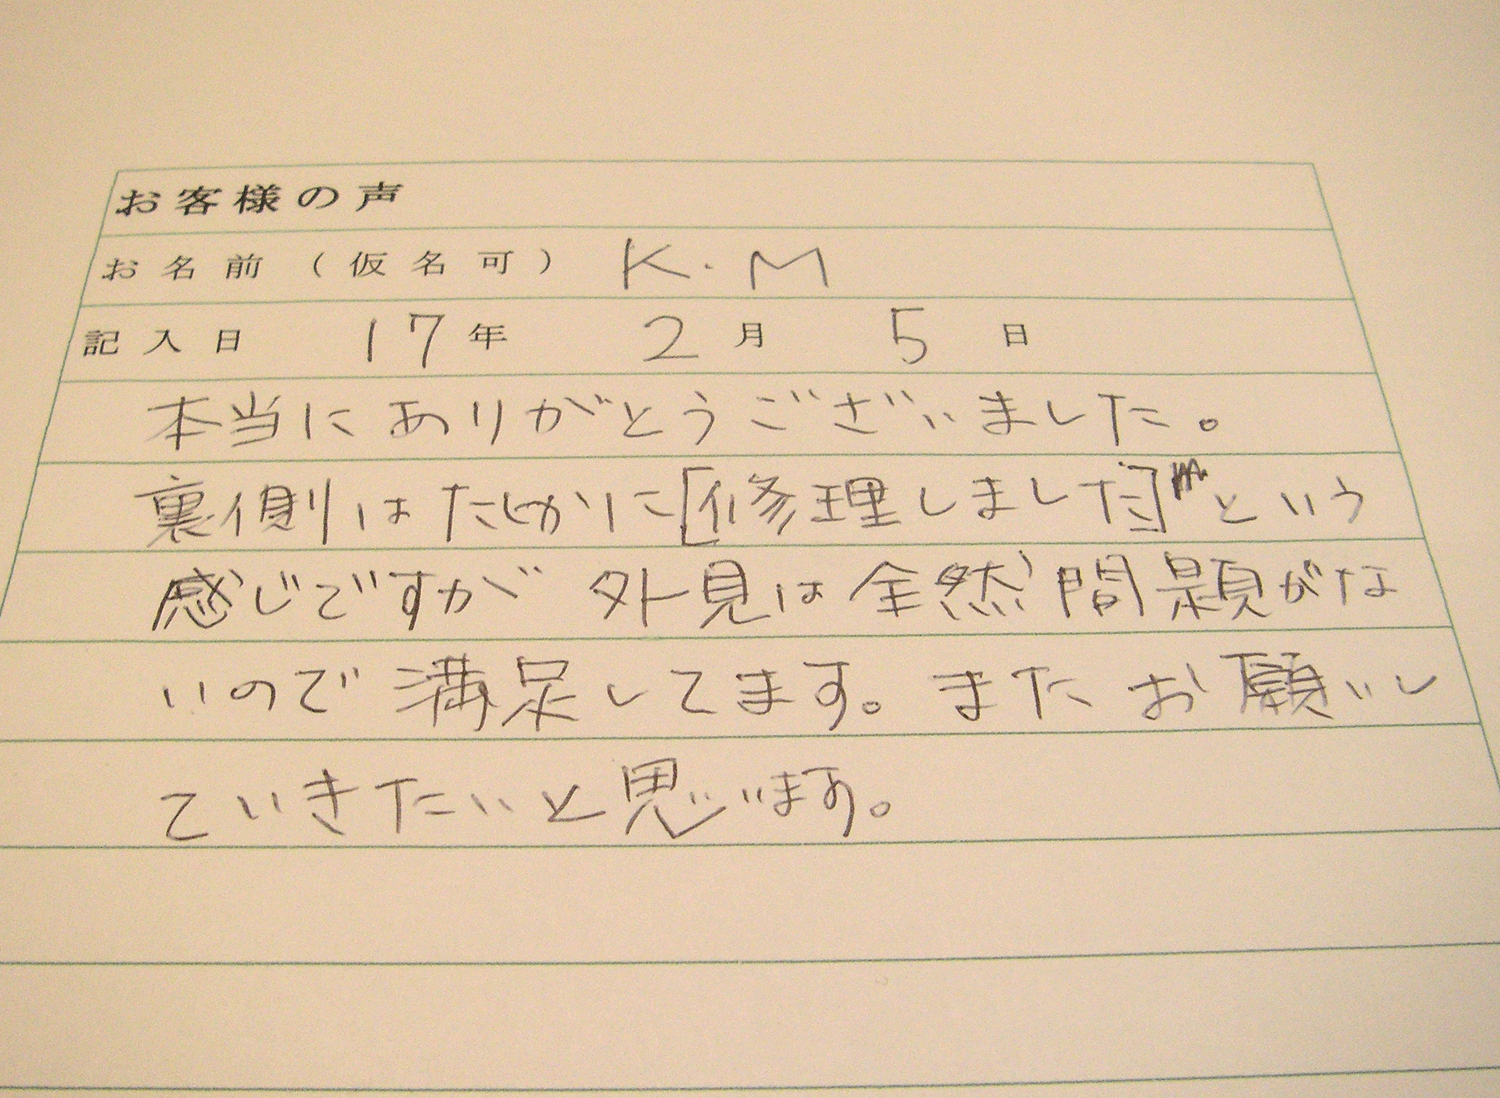 お客様の声
お名前(仮名可) K.M
記入日 17年 2月 5日
本当にありがとうございました。
裏側はたしかに[修理しました]という
感じですが 外見は全然問題がな
いので満足してます。またお願いし
ていきたいと思います。